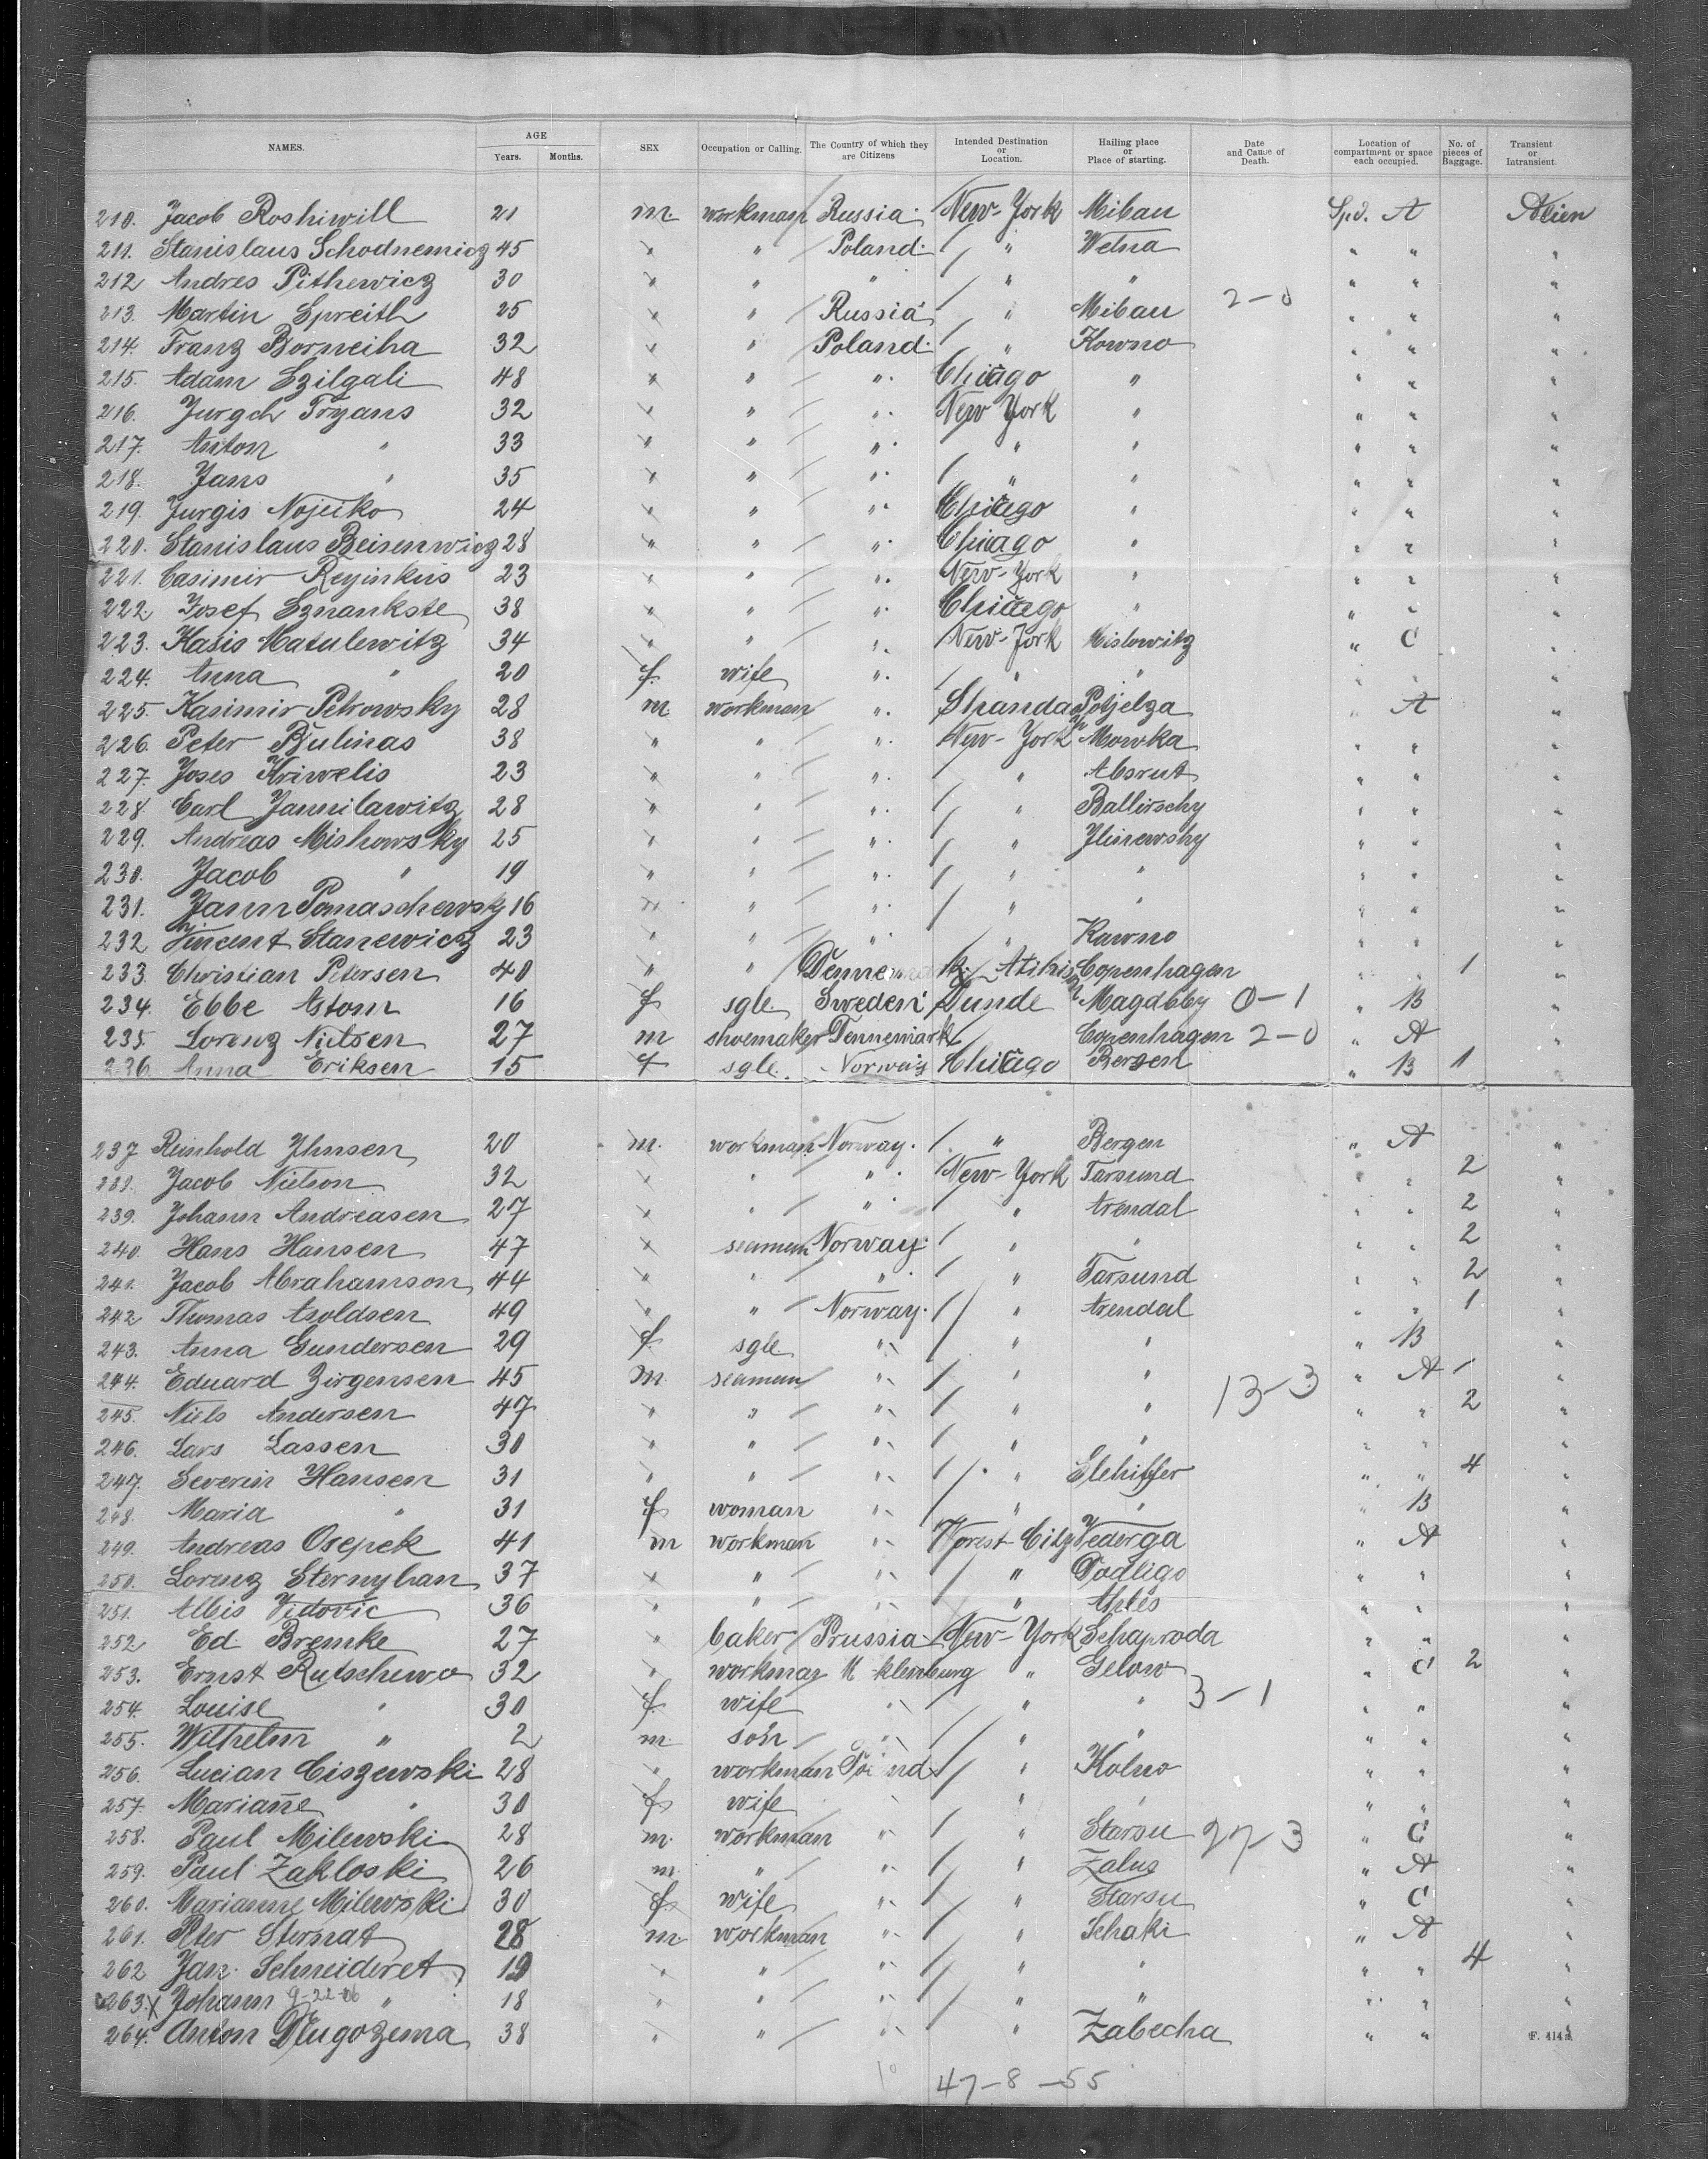 NAMES. AGE Years. Months. SEX Occupation or Calling. The Country of which they are Citizens Intended Destination or Location. Hailing place or Place of starting. Date and Cause of Death. Location of compartment or space each occupied. No. of pieces of Baggage. Transient or Intransient.
210. Jacob Roshiwill 21 m. workman Russia New-York Mibau Spd. A Alien
211. Stanislaus Schodnemicz 45 " " Poland " Wetna " " "
212 Andres Pithewicz 30 " " " " " " " "
213. Martin Spreith 25 " " Russia " Mibau 2-0 " " "
214. Franz Borneiha 32 " " Poland " Kowno " " "
215. Adam Szilgali 48 " " " Chicago " " " "
216. Jurgch Tryans 32 " " " New York " " " "
217. Anton " 33 " " " " " " " "
218. Jans " 35 " " " " " " " "
219. Jurgis Nojeiko 24 " " " Chicago " " " "
220. Stanislaus Beisenwicz 28 " " " Chicago " " " "
221. Casimir Reyinkus 23 " " " New-York " " " "
222. Josef Sznankste 38 " " " Chicago " " " "
223. Kasis Matulewitz 34 " " " New-York Mislowitz " C "
224. Anna " 20 f. wife " " " " " "
225. Kasimir Petrowsky 28 m workman " Potjelza " A "
226. Peter Bulinas 38 " " " New-York Mowka " " "
227. Joses Kriwelis 23 " " " " Absrut " " "
228. Carl Jannilawitz 28 " " " " Ballirschy " " "
229. Andreas Mishowsky 25 " " " " Jlinewshy " " "
230. Jacob " 19 " " " " " " " "
231. Jann Pomaschewsky 16 " " " " " " " "
232 Vincent Stanewicz 23 " " " " Kawno " " "
233. Christian Petersen 40 " " Dennemark Copenhagen " " 1 "
234. Ebbe Astom 16 f sgle. Sweden Lunde Magdbby 0-1 " B "
235. Lorenz Nielsen 27 m shoemaker Dennemark Copenhagen 2-0 " A "
236. Anna Eriksen 15 f sgle. Norway Chicago Bergen " B 1
237 Reinhold Jhnsen 20 m. workman Norway. " Bergen " A "
Jacob Nielson 32 " " " New-York Farsund " " 2 "
239. Johann Andreasen 27 " " " " Arendal " " 2 "
240. Hans Hansen 47 " seaman Norway " " " " 2 "
241. Jacob Abrahamson 44 " " " " Farsund " " 2 "
242 Thomas Asoldsen 49 " " Norway. " Arendal " " 1 "
243. Anna Gundersen 29 f. sgle " " " " B "
244. Eduard Zirgensen 45 m. seaman " " " 13-3 " A "
245. Niels Andersen 47 " " " " " " " 2 "
246. Lars Lassen 30 " " " " " " " "
247. Severin Hansen 31 " " " " " " 4 "
248. Maria " 31 f woman " " " " B "
249. Andreas Osepek 41 m workman " Forest City Vederga " A "
250. Lorenz Sternyhan 37 " " " " Podligo " " "
251. Albis Vidovic 36 " " " " " " "
252 Ed. Bremke 27 " baker Prussia New-York Schaproda " " "
253. Ernst Rutschewo 32 " workman M klenburg " Gelow " C 2 "
254. Louise " 30 f. wife " " " 3-1 " " "
255. Wilhelm " 2 m. son " " " " " "
256. Lucian Ciszewski 28 " workman Poland " Kolno " " "
257. Mariane " 30 f. wife " " " " " "
258. Paul Milewski 28 m. workman " " Starsu 27-3 " C "
259. Paul Zakloski 26 m. " " " Zalus " A "
260. Marianne Milewski 30 f. wife " " Starsu " C "
261. Peter Stornat 28 m. workman " " Schaki " A "
262 Jan. Schneideret 19 " " " " " " " 4 "
263. X Johann 9-22-06 " 18 " " " " " " " "
264. Anton Dlugozema 38 " " " " Zabecha " " "
F. 414
47-8-55